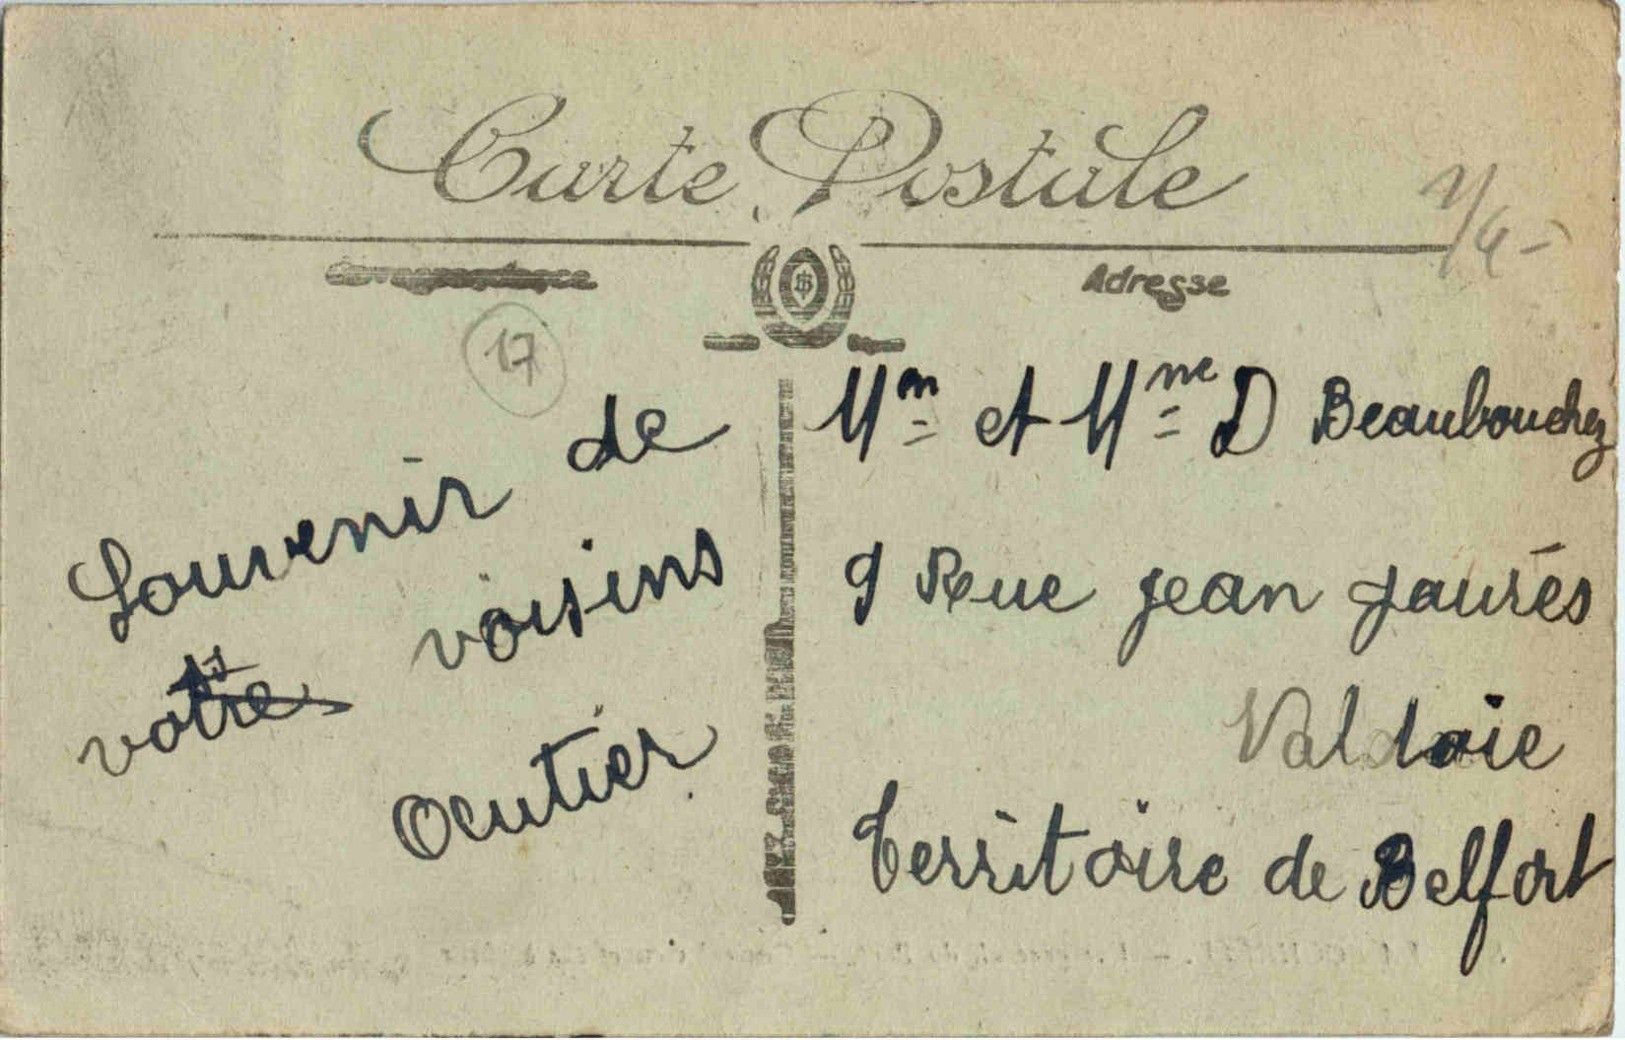 Carte Postale
Adresse
17
Souvenir de
votre voisins
Ocutier
Mr et Mme D Beaubouchez
9 Rue jean jaurés
Valdoie
Territoire de Belfort